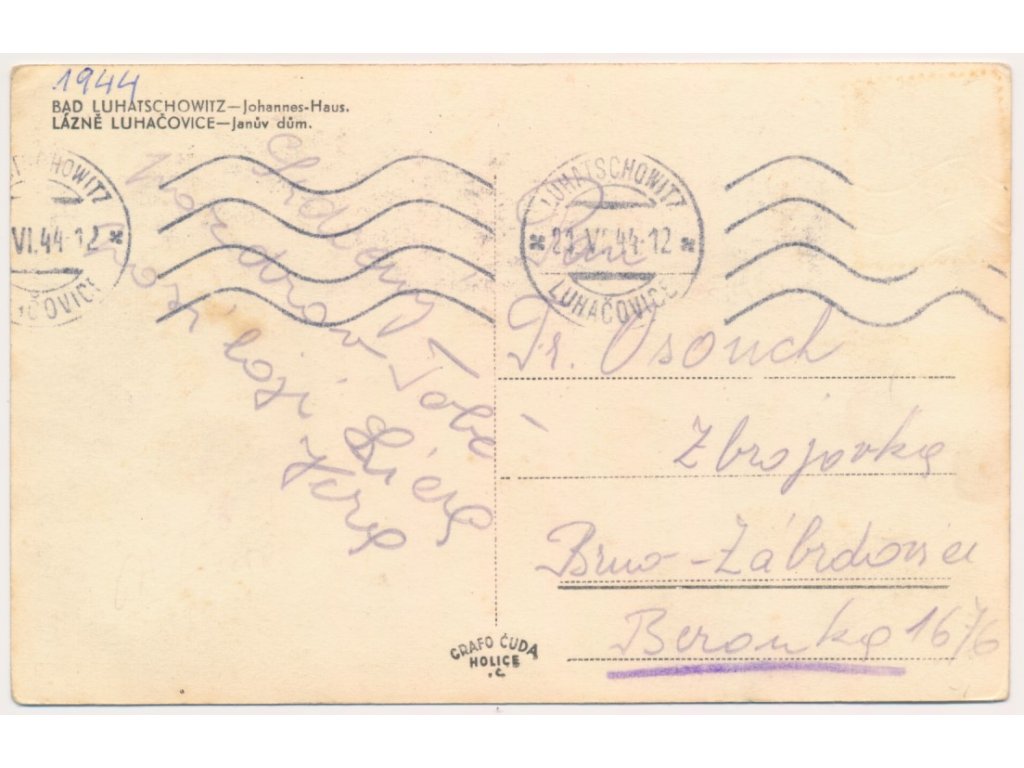 1944
BAD LUHATSCHOWITZ—Johannes-Haus.
LÁZNĚ LUHAČOVICE—Janův dům.
HOWITZ
VI.44-12
ČOVICE
LUHATSCHOWITZ
VI.44-12
LUHAČOVICE
Srdečný
pozdrav Tobě
Pan
Dr. Osouch
Zbrojovka
Brno-Zábrdovice
Beranka 16/6
GRAFO ČUDA
HOLICE
.C